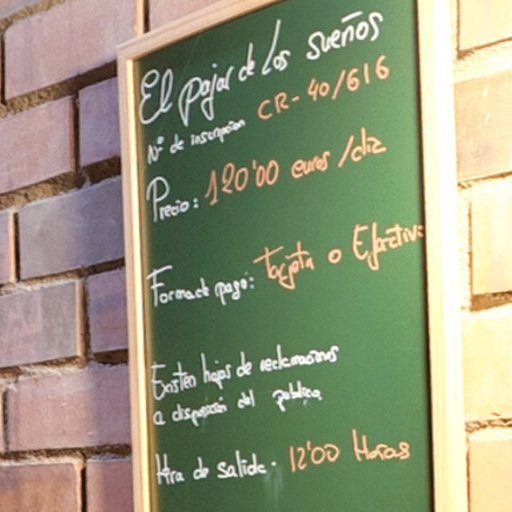 El pajar de los sueños
Nº de inscripcion CR-40/616
Precio: 120'00 euros /dia
Forma de pago: Tarjeta o Efectivo
Existen hojas de reclamaciones
a disposición del publico
Hora de salida. 12'00 Horas